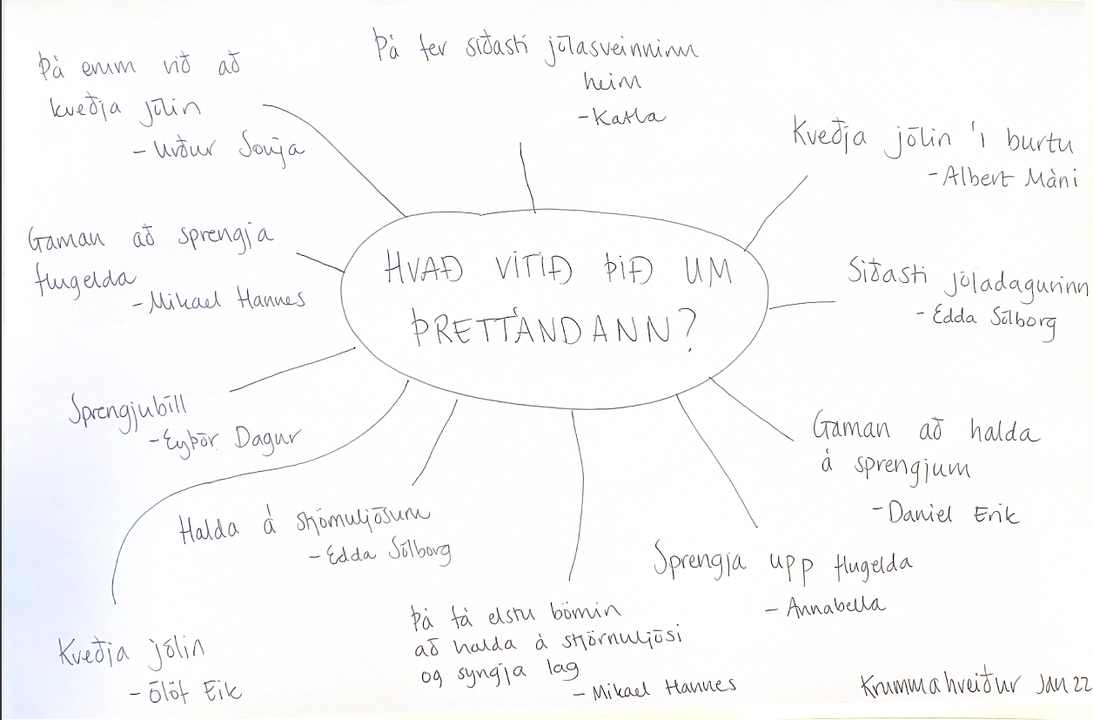 Þá erum við að
kveðja jólin
- Urður Sonja
Þá fer síðasti jólasveinninn
heim
- Katla
Kveðja jólin í burtu
- Albert Máni
Gaman að sprengja
flugelda
- Mikael Hannes
HVAÐ VITIÐ ÞIÐ UM
ÞRETTÁNDANN?
Síðasti jóladagurinn
- Edda Sólborg
Sprengjubíll
- Eyþór Dagur
Gaman að halda
á sprengjum
- Daniel Erik
Halda á stjörnuljósum
- Edda Sólborg
Sprengja upp flugelda
- Annabella
Þá fá elstu börnin
að halda á stjörnuljósi
og syngja lag
- Mikael Hannes
Kveðja jólin
- Ólöf Eik
Krummahreiður Jan 22